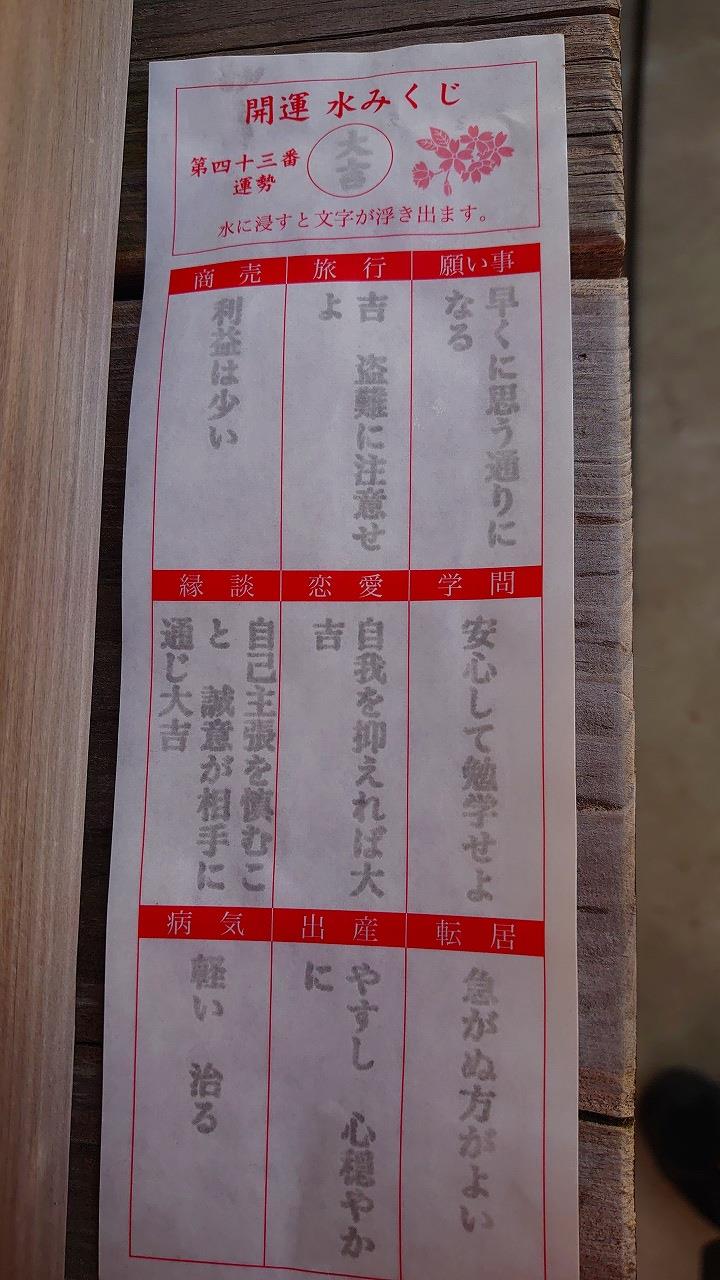 開運 水みくじ
第四十三番
運勢
大吉
水に浸すと文字が浮き出ます。
願い事
早くに思う通りに
なる
旅行
吉 盗難に注意せ
よ
商売
利益は少い
学問
安心して勉学せよ
恋愛
自我を抑えれば大
吉
縁談
自己主張を慎むこ
と 誠意が相手に
通じ大吉
転居
急がぬ方がよい
出産
やすし 心穏やか
に
病気
軽い 治る